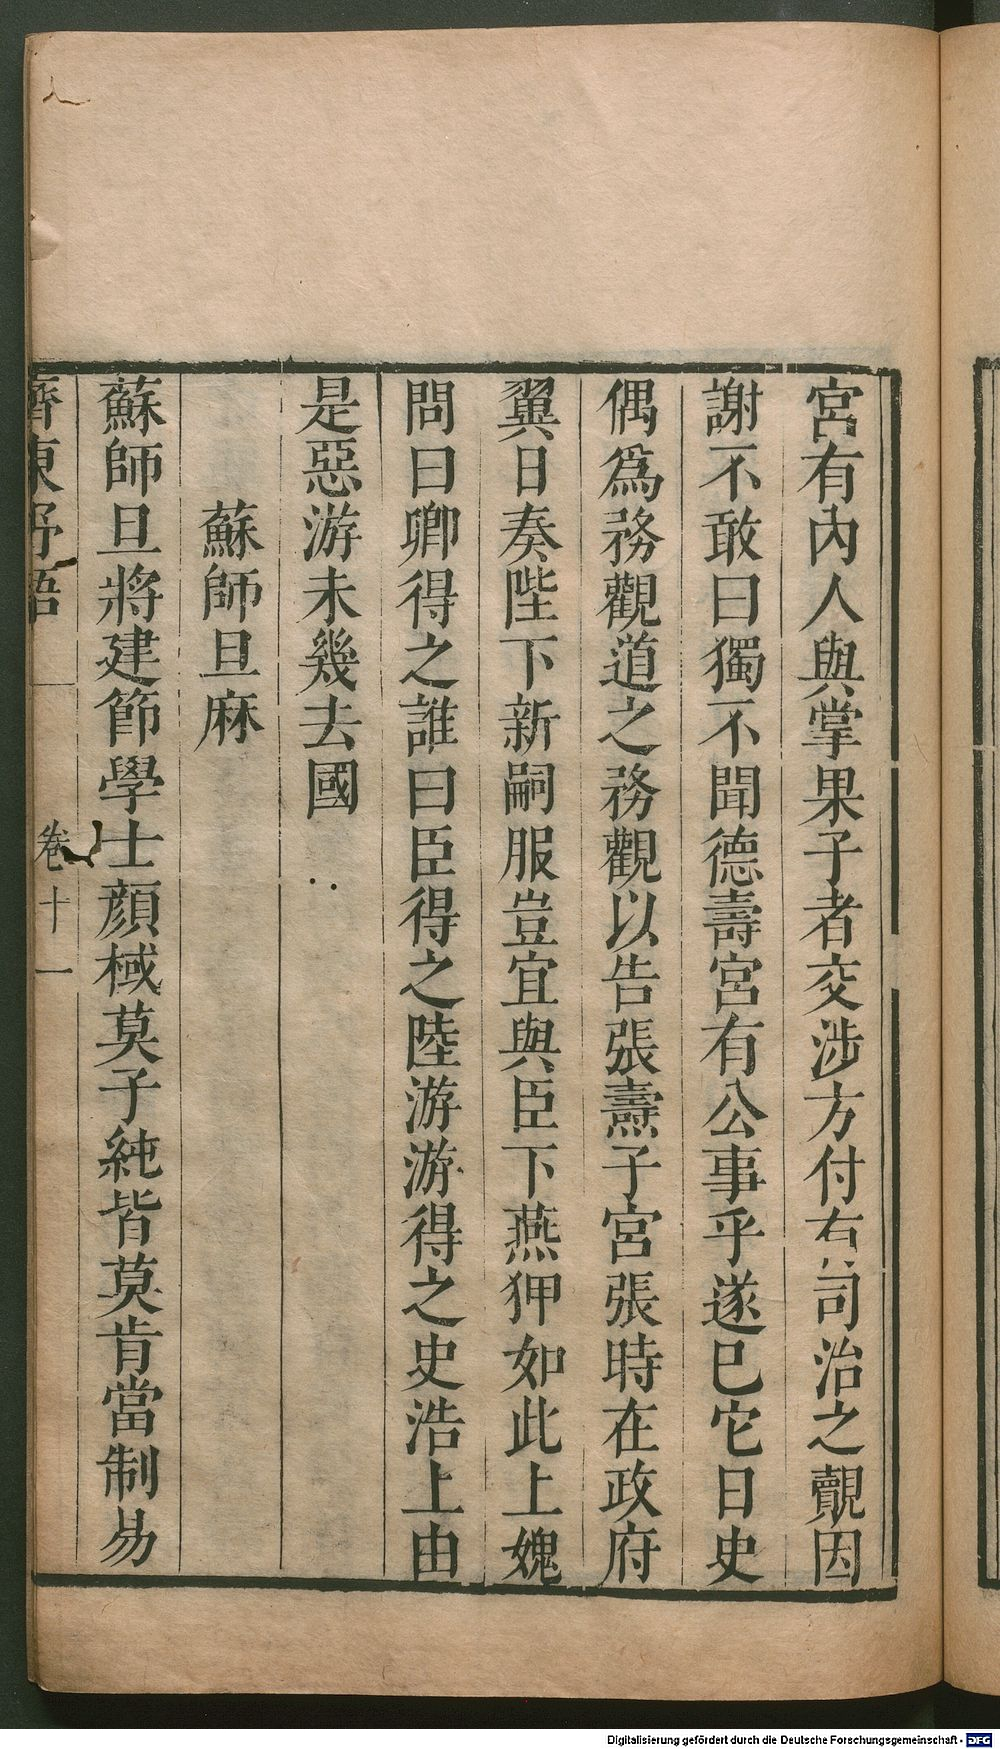 宮有內人與掌果子者交涉方付有司治之覿因
謝不敢曰獨不聞德壽宮有公事乎遂已它日史
偶爲務觀道之務觀以告張燾子宮張時在政府
翼日奏陛下新嗣服豈宜與臣下燕狎如此上媿
問曰卿得之誰曰臣得之陸游游得之史浩上由
是惡游未幾去國
蘇師旦麻
蘇師旦將建節學士顏棫莫子純皆莫肯當制易
齊東野語 卷十一
Digitalisierung gefördert durch die Deutsche Forschungsgemeinschaft - DFG